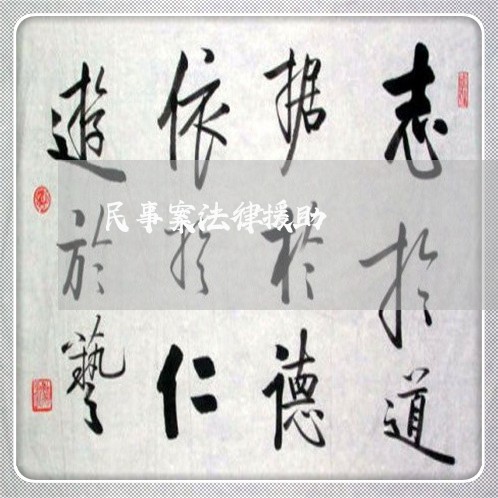 志於道
据於德
依於仁
遊於藝
民事案法律援助